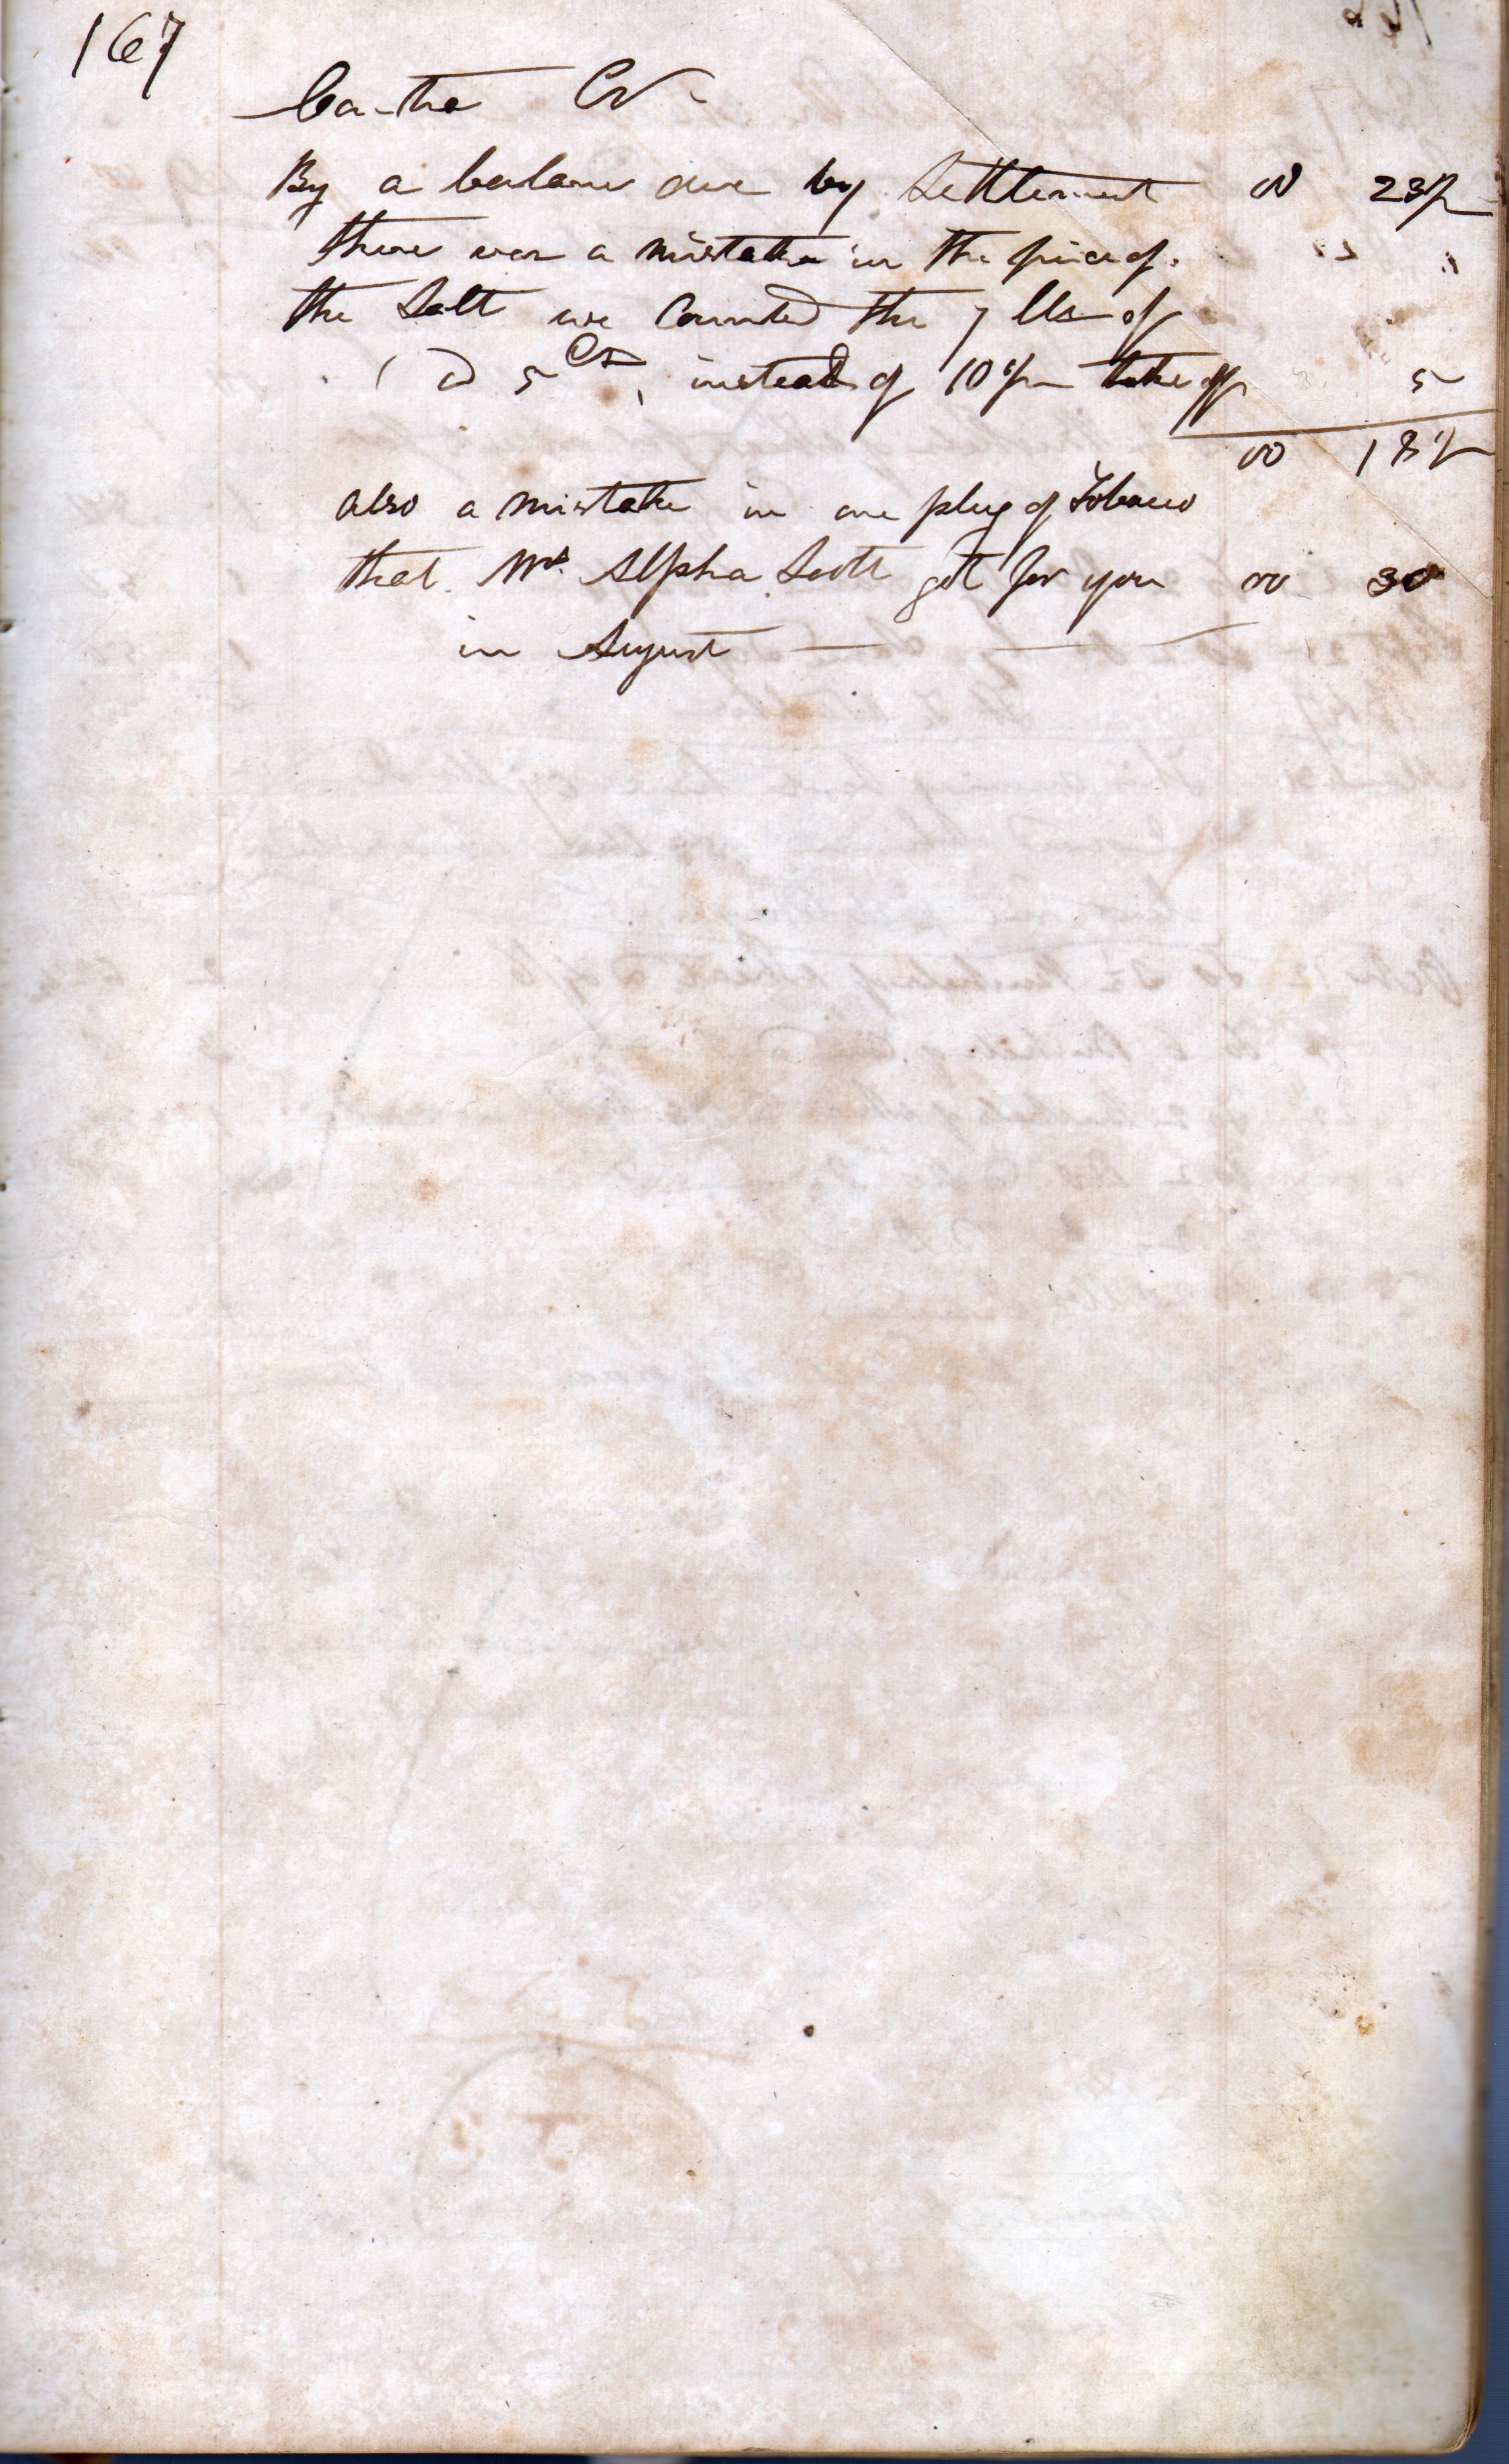 167
Contra Cr
By a balance due by Settlement 00 23½
there was a mistake in the price of
the Salt we Counted the 7 lbs of
@ 5 Cts, instead of 10 take off 5
00 18½
also a mistake in one plug of Tobacco
that Mr Alpha Scott got for you 00 30
in August